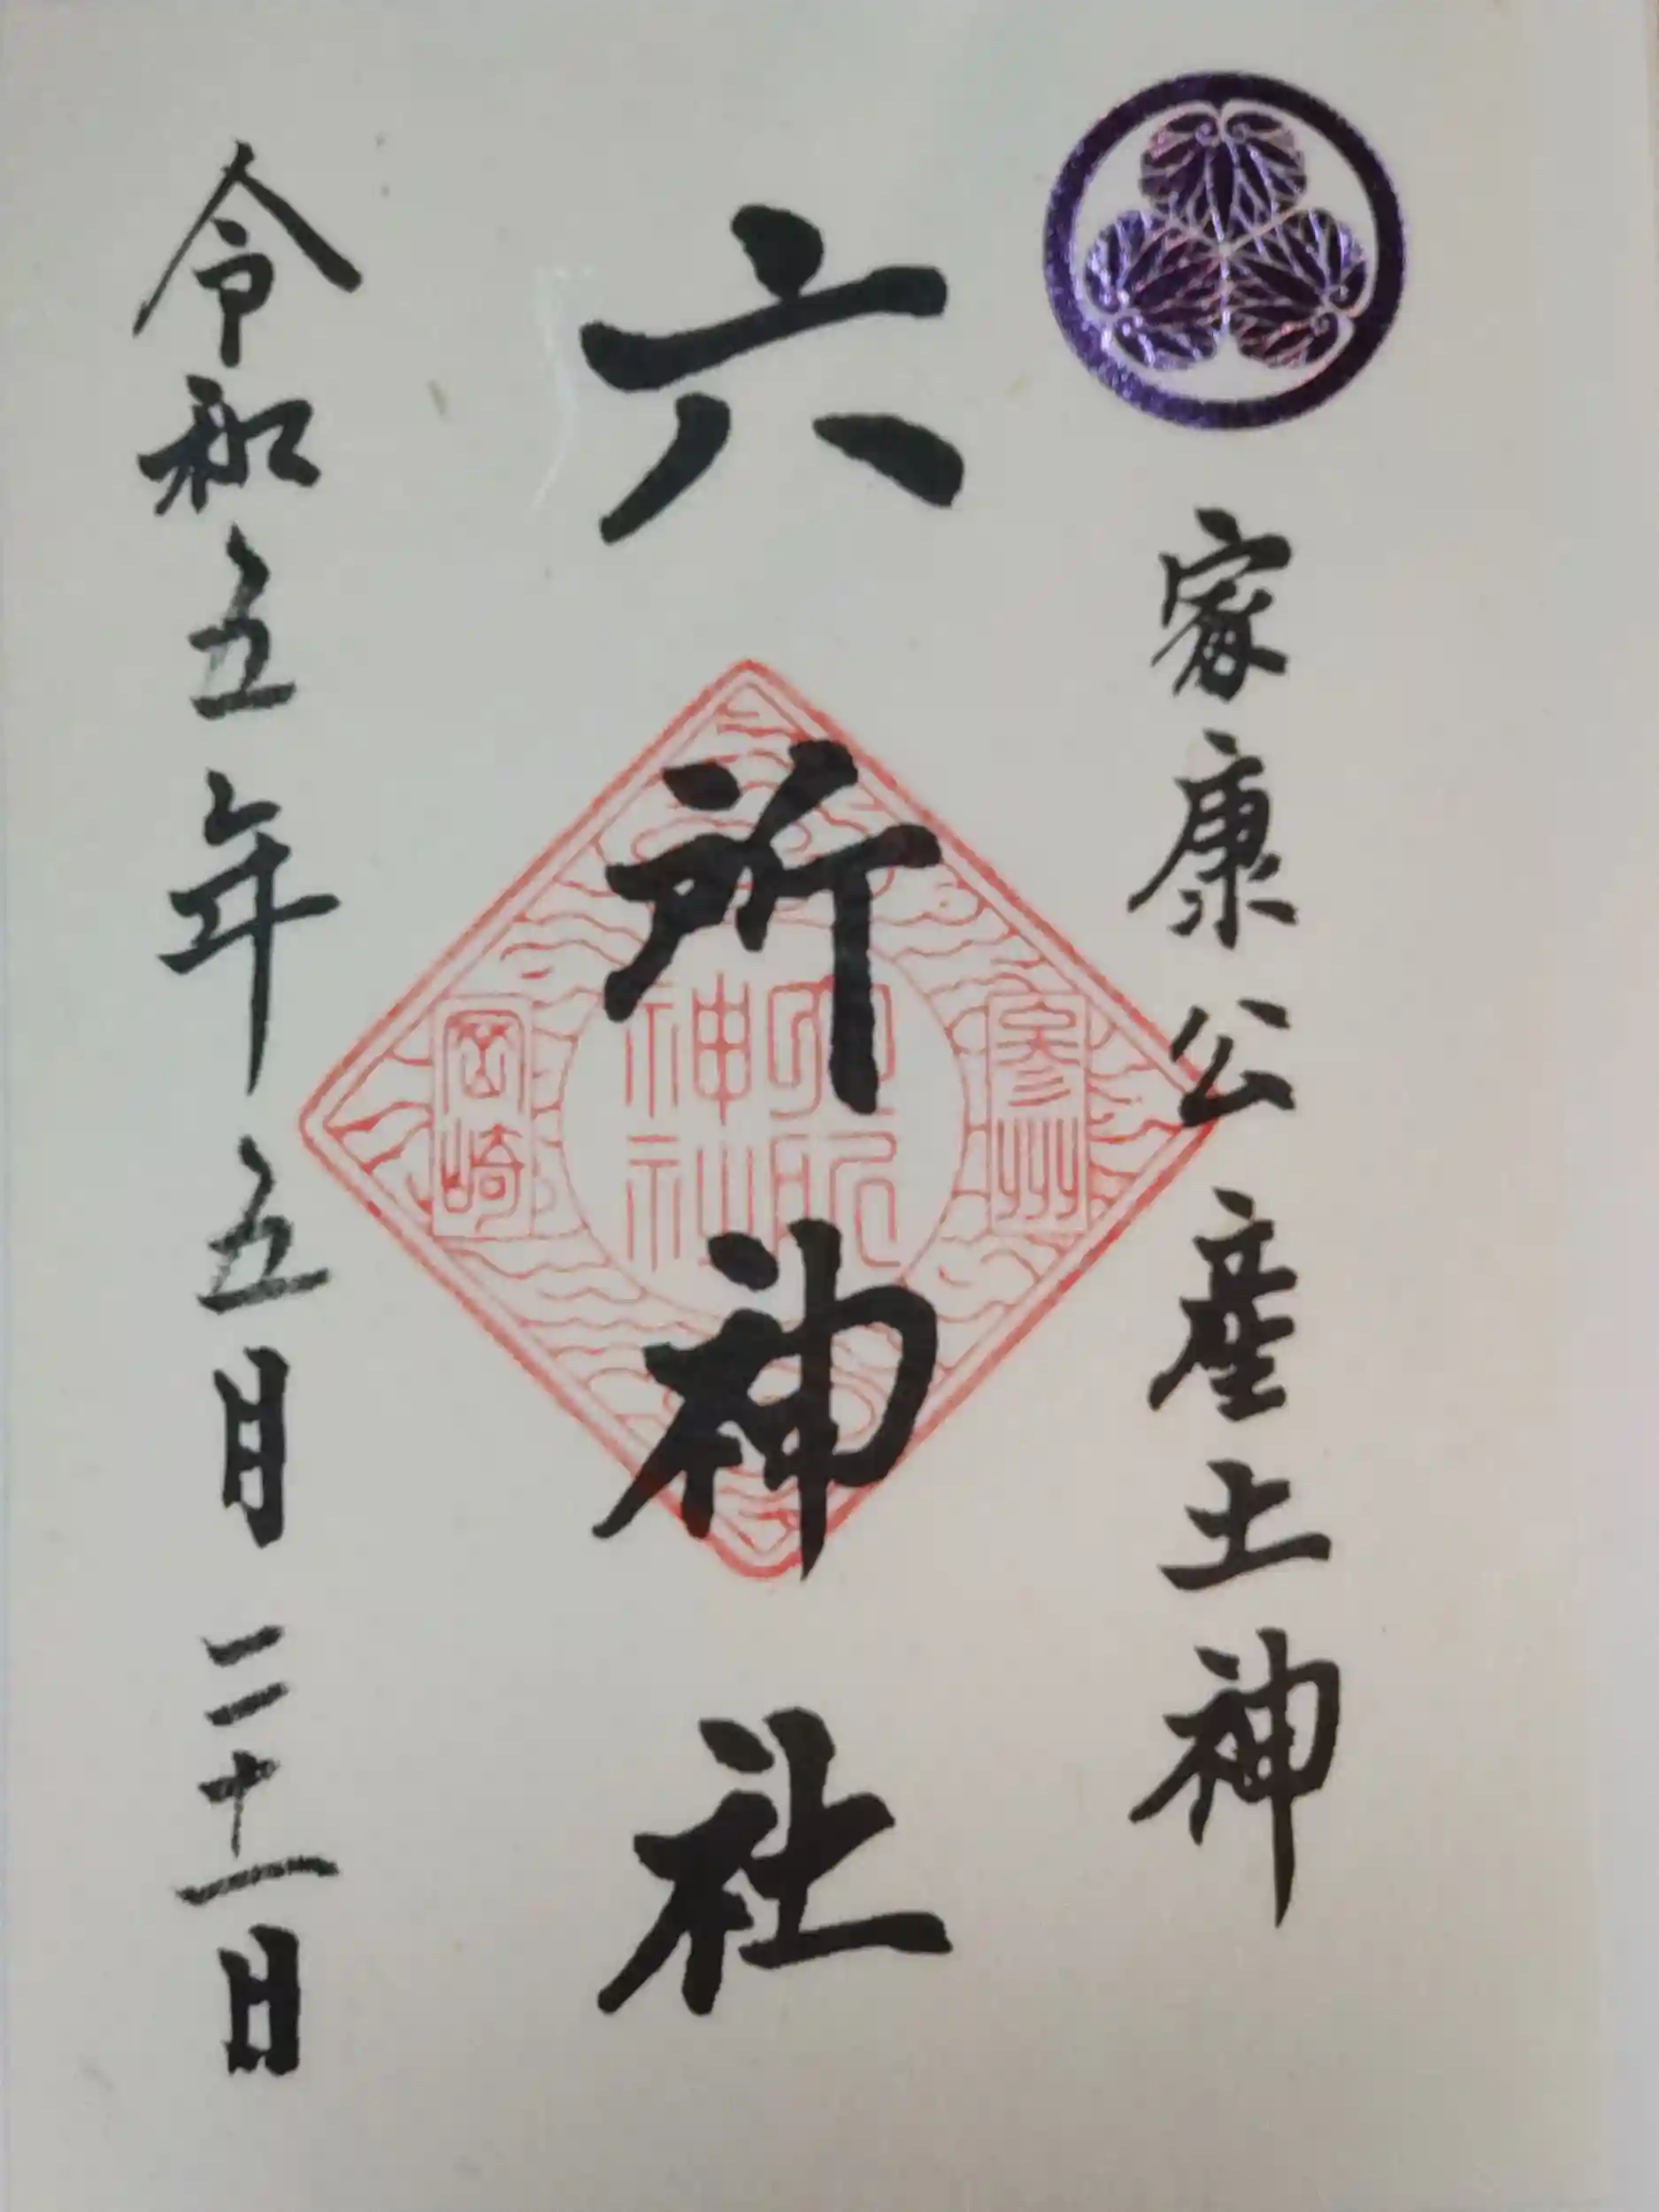 家康公産土神
六所神社
参州
六所神社
岡崎
令和五年五月二十一日